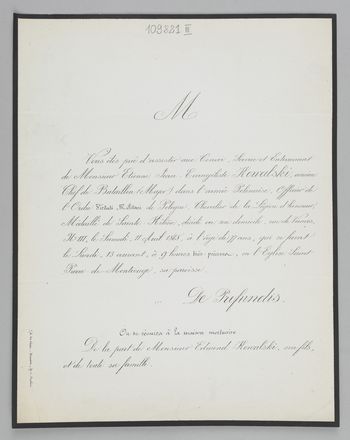 109821 III
M
Vous êtes prié d'assister aux Convoi, Service et Enterrement
de Monsieur Etienne Jean Evangéliste Kowalski, ancien
Chef de Bataillon (Major) dans l'armée Polonaise, Officier de
l'Ordre Virtuti Militari de Pologne, Chevalier de la Légion d'honneur,
Médaillé de Sainte Hélène, décédé en son domicile, rue de
Nº 111, le Samedi, 11 Avril 1868, à l'âge de 77 ans, qui se feront
le Lundi, 13 courant, à 9 heures très précises, en l'Eglise Saint
Pierre de Montrouge, sa paroisse.
De Profundis.
On se réunira à la maison mortuaire
De la part de Monsieur Edmond Kowalski, son fils,
et de toute sa famille.